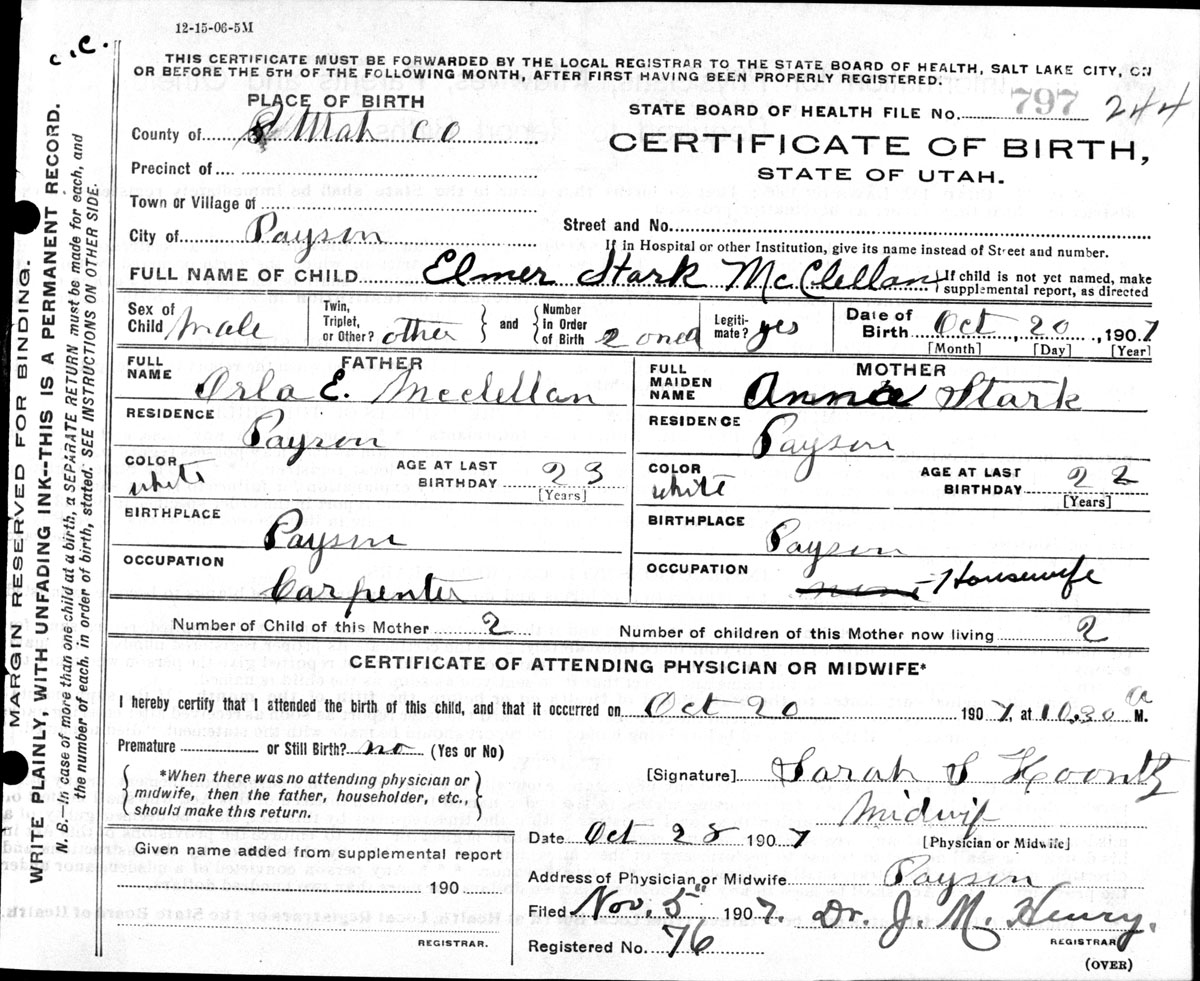 12-15-06-5M
c.c.
THIS CERTIFICATE MUST BE FORWARDED BY THE LOCAL REGISTRAR TO THE STATE BOARD OF HEALTH, SALT LAKE CITY, ON
OR BEFORE THE 5TH OF THE FOLLOWING MONTH, AFTER FIRST HAVING BEEN PROPERLY REGISTERED.
PLACE OF BIRTH
STATE BOARD OF HEALTH FILE No. 797 244
County of Utah CO
CERTIFICATE OF BIRTH,
STATE OF UTAH.
Precinct of
Town or Village of
City of Payson
Street and No.
If in Hospital or other Institution, give its name instead of Street and number.
FULL NAME OF CHILD Elmer Stark McClellan { If child is not yet named, make
supplemental report, as directed
Sex of Child male
Twin, Triplet, or Other? other } and { Number in Order of Birth 2 ond
Legitimate? yes
Date of Birth Oct 20, 1907
[Month] [Day] [Year]
FATHER
FULL NAME Orla E. Mcclellan
MOTHER
FULL MAIDEN NAME Anna Stark
RESIDENCE Payson
RESIDENCE Payson
COLOR white
AGE AT LAST BIRTHDAY 23
[Years]
COLOR white
AGE AT LAST BIRTHDAY 22
[Years]
BIRTHPLACE Payson
BIRTHPLACE Payson
OCCUPATION Carpenter
OCCUPATION Housewife
Number of Child of this Mother 2
Number of children of this Mother now living 2
CERTIFICATE OF ATTENDING PHYSICIAN OR MIDWIFE*
I hereby certify that I attended the birth of this child, and that it occurred on Oct 20 1907, at 10.30 a M.
Premature or Still Birth? no (Yes or No)
{ *When there was no attending physician or
midwife, then the father, householder, etc.,
should make this return. }
[Signature] Sarah S Koontz
Midwif
[Physician or Midwife]
Date Oct 28 1907
Given name added from supplemental report
190
REGISTRAR.
Address of Physician or Midwife Payson
Filed Nov, 5" 1907. Dr. J. M. Henry.
REGISTRAR
Registered No. 76
(OVER)
MARGIN RESERVED FOR BINDING.
WRITE PLAINLY, WITH UNFADING INK--THIS IS A PERMANENT RECORD.
N. B.—In case of more than one child at a birth, a SEPARATE RETURN must be made for each, and
the number of each, in order of birth, stated. SEE INSTRUCTIONS ON OTHER SIDE.